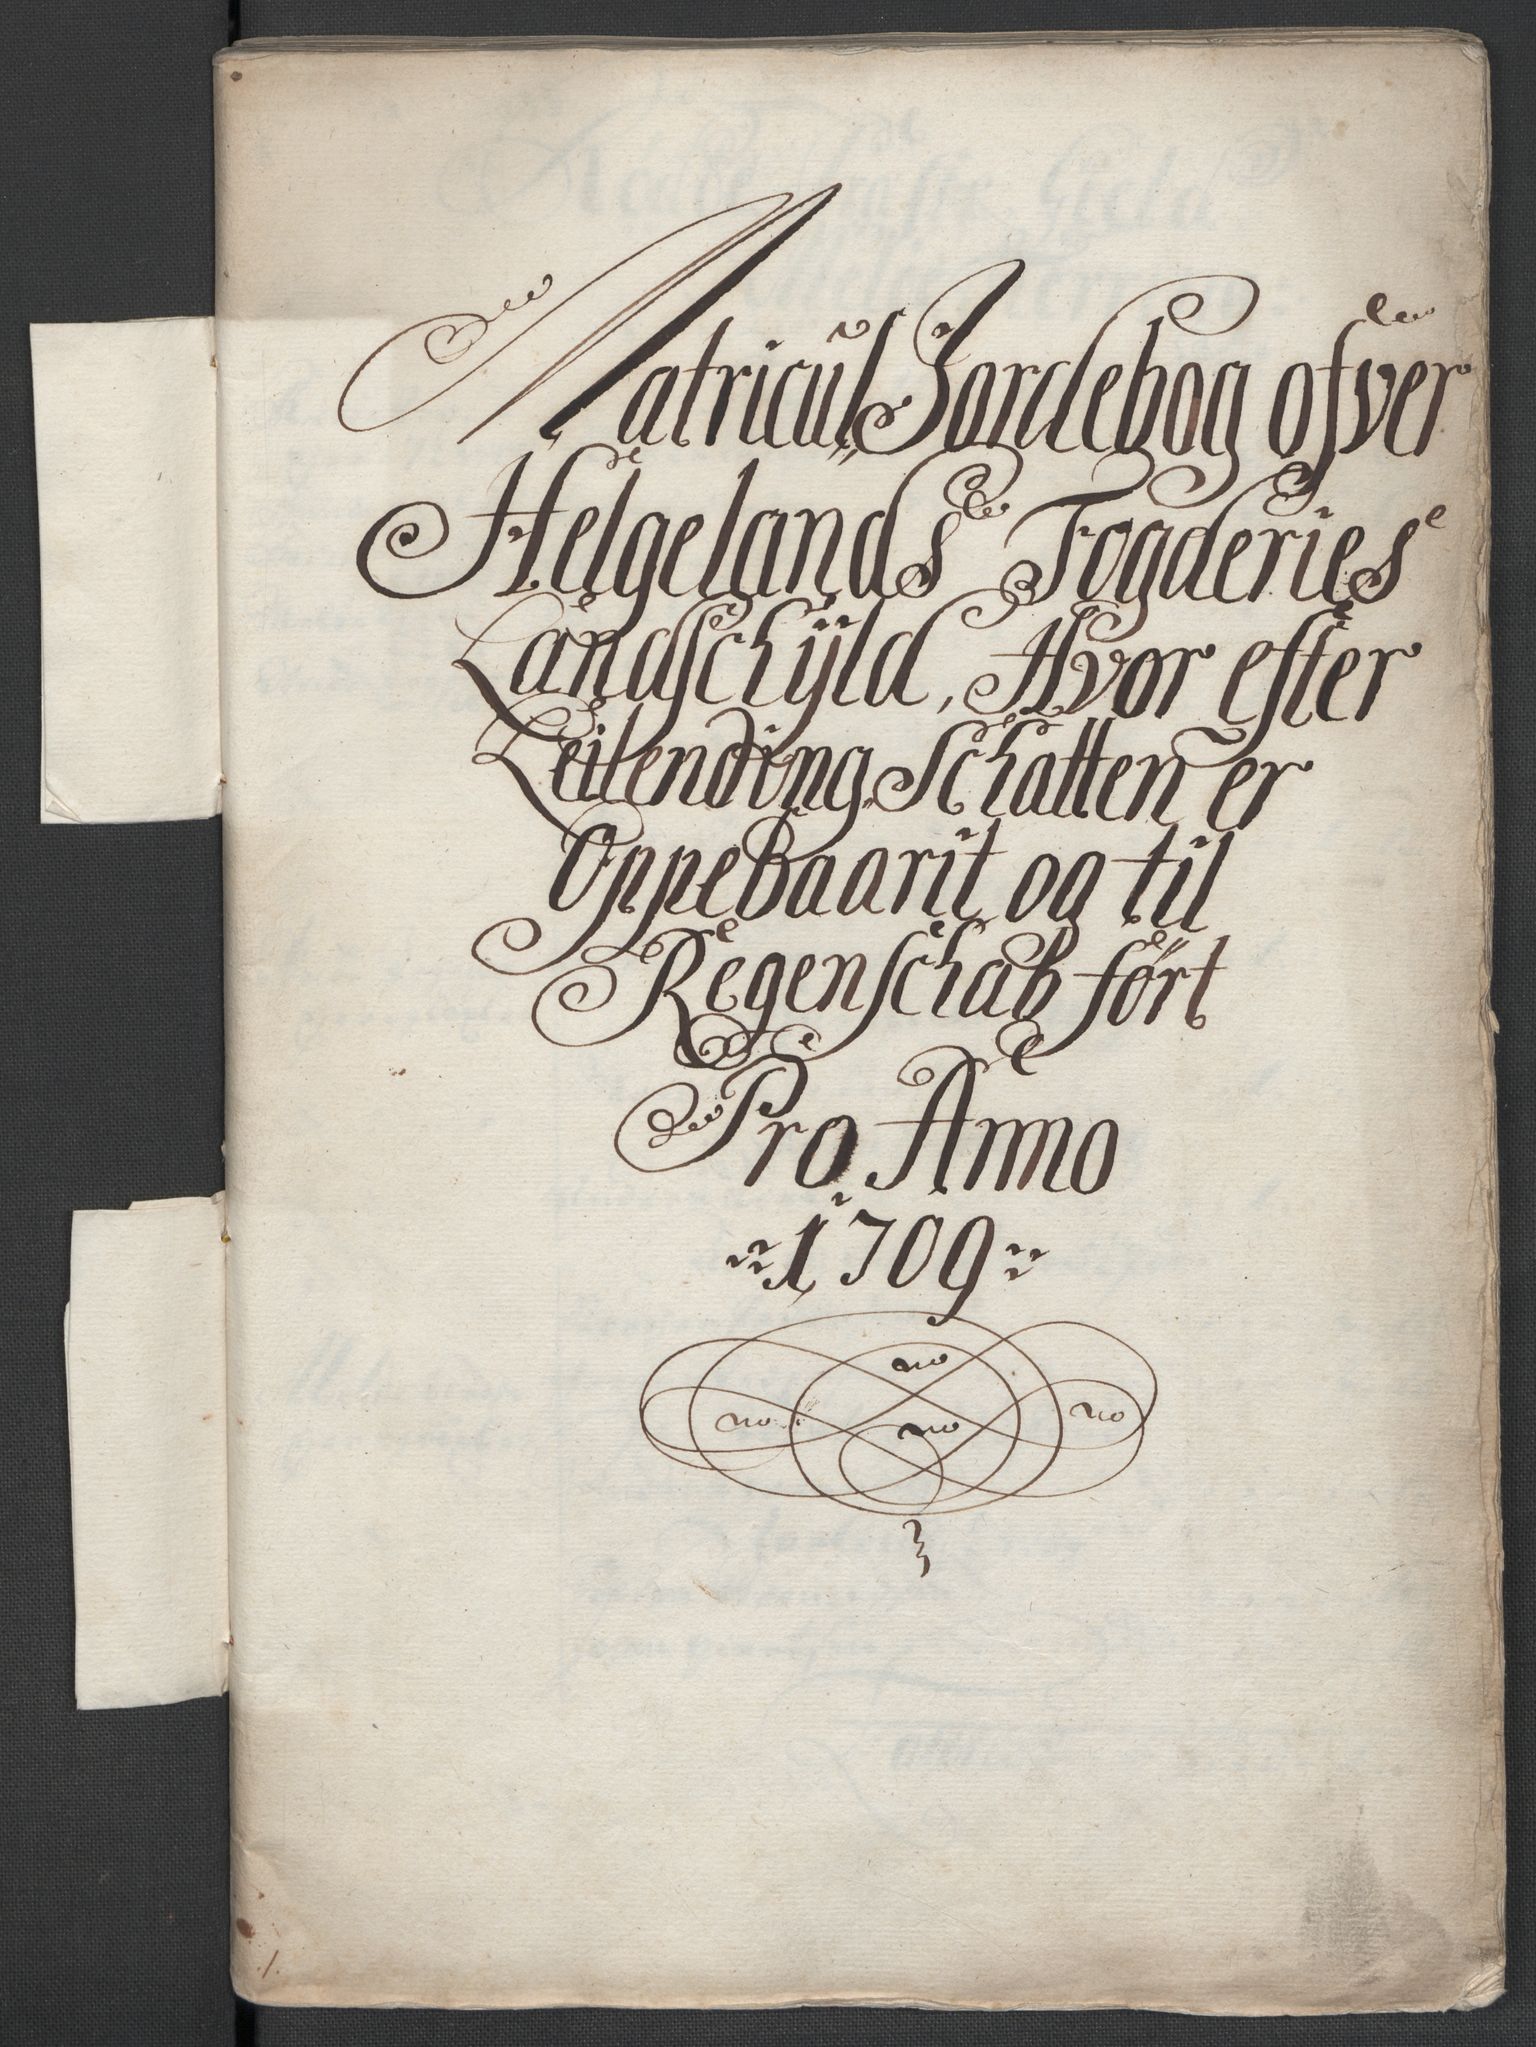 Matricul Jordebog ofver
Helgelands Fogderies
Landschÿld, Hvor efter
Leilending Schatten er
Oppebaarit og til
Regenschab ført
Pro Anno
1709
no
no no no